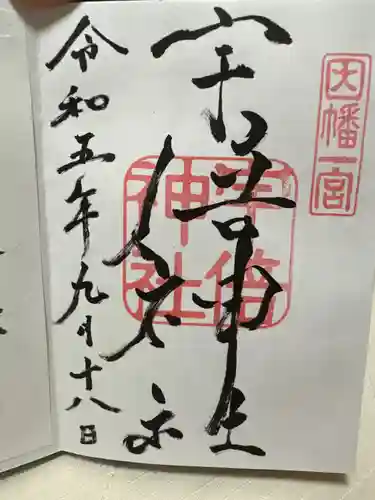 因幡一宮
宇倍神社
宇倍神社
令和五年九月十八日